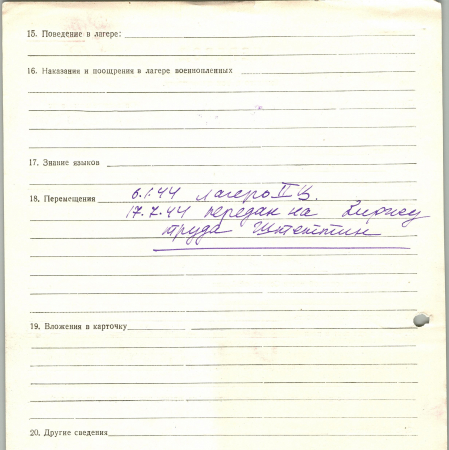 15. Поведение в лагере:
16. Наказания и поощрения в лагере военнопленных
17. Знание языков
18. Перемещения 6.1.44 лагерь II Ц.
17.7.44 передан на Биржу
труда Штеттин
19. Вложения в карточку
20. Другие сведения